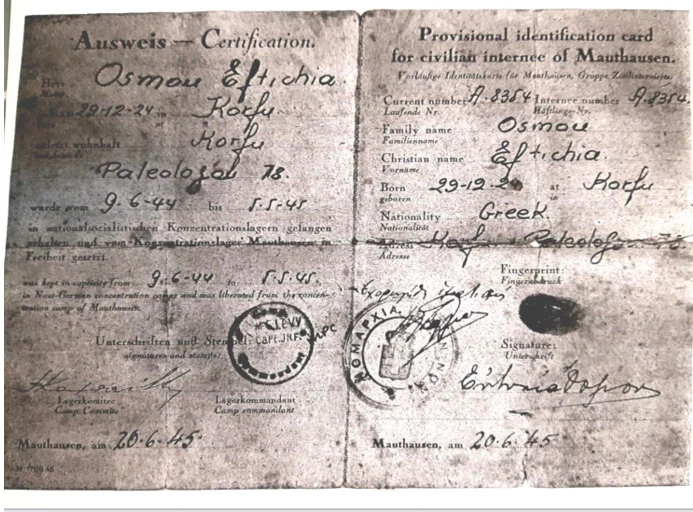 Ausweis — Certification.
Herr Osmou Eftichia.
29-12-24 in Korfu
zuletzt wohnhaft Korfu
Paleologou 78
wurde vom 9.6-44 bis 5.5-45
in nationalsozialistischen Konzentrationslagern gefangen
gehalten und vom Konzentrationslager Mauthausen in
Freiheit gesetzt.
was kept in captivity from 9.6-44 to 5.5-45.
in Nazi-German concentration camps and was liberated from the concen-
tration camp of Mauthausen.
Unterschriften und Stempel:
signatures and stamps:
LEVY
CAPT. INF.
Commandant
Lagerkomitee
Camp Committe
Lagerkommandant
Camp commandant
Mauthausen, am 20-6-45
Provisional identification card
for civilian internee of Mauthausen.
Vorläufige Identitätskarte für Mauthausen, Gruppe Zivilinternierte.
Current number A-8354 Internee number A-8354
Laufende Nr. Häftlings-Nr.
Family name Osmou
Familienname
Christian name Eftichia.
Vorname
Born 29-12-24 at Korfu
geboren in
Nationality Greek.
Nationalität
Korfu Paleologou 78
Adresse
Fingerprint:
Fingerabdruck
ΝΟΜΑΡΧΙΑ
Signature:
Unterschrift
Mauthausen, am 20-6-45